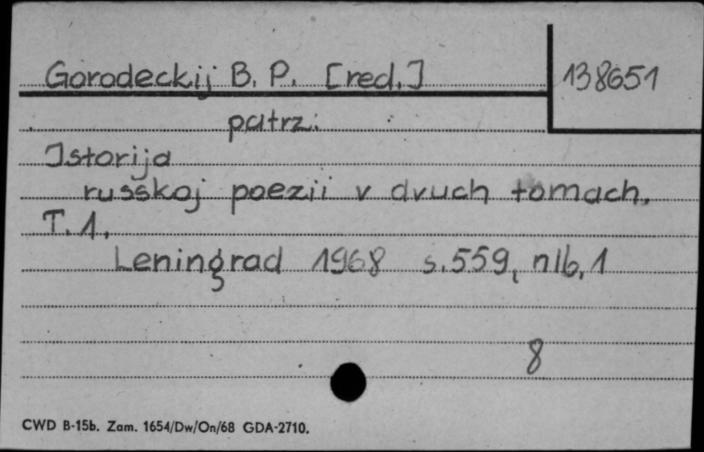 Gorodeckij B. P. [red.]
138651
patrz:
Istorija
russkoj poezii v dvuch tomach.
T. 1.
Leningrad 1968 s. 559, nlb, 1
8
CWD B-15b. Zam. 1654/Dw/On/68 GDA-2710.